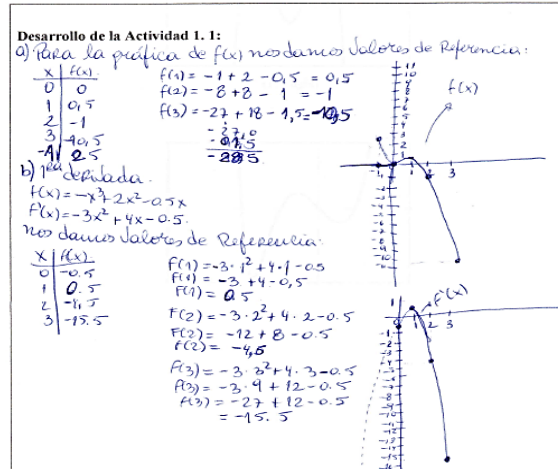 Desarrollo de la Actividad 1. 1:
a) Para la gráfica de f(x) nos damos Valores de Referencia:
x | f(x)
0 | 0
1 | 0,5
2 | -1
3 | -10,5
-1 | 2.5
f(1) = -1 + 2 - 0,5 = 0,5
f(2) = -8 + 8 - 1 = -1
f(3) = -27 + 18 - 1,5 = -10,5
- 27,0
- 01,5
- 28,5
f(x)
b) 1era derivada.
f(x) = -x³ + 2x² - 0.5x
f'(x) = -3x² + 4x - 0.5.
nos damos Valores de Referencia:
x | f(x)
0 | -0.5
1 | 0.5
2 | -4,5
3 | -15.5
F(1) = -3 · 1² + 4 · 1 - 0.5
F(1) = -3 + 4 - 0,5
F(1) = 0.5
F(2) = -3 · 2² + 4 · 2 - 0.5
F(2) = -12 + 8 - 0.5
F(2) = -4,5
F(3) = -3 · 3² + 4 · 3 - 0.5
F(3) = -3 · 9 + 12 - 0.5
F(3) = -27 + 12 - 0.5
= -15. 5
f'(x)